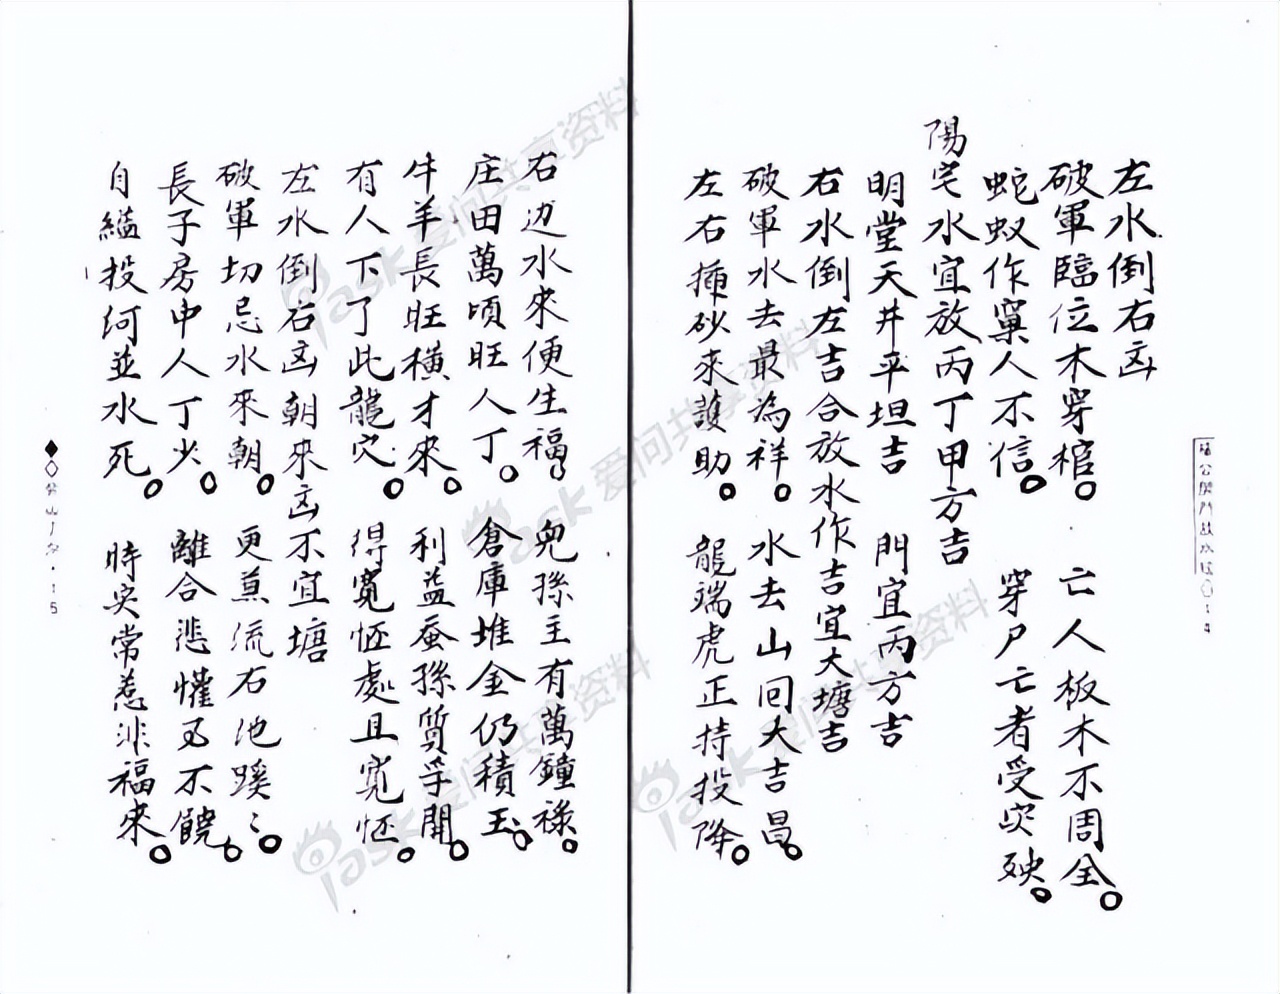 左水倒右凶
破軍臨位木穿棺。 亡人板木不周全。
蛇蚁作窠人不信。 穿尸亡者受灾殃。
陽宅水宜放丙丁甲方吉
明堂天井平坦吉 門宜丙方吉
右水倒左吉合放水作吉宜大塘吉
破軍水去最為祥。 水去山回大吉昌。
左右插砂來護助。 龍端虎正持投降。
:4
右边水來便生福。 兒孫主有萬鐘祿。
庄田萬頃旺人丁。 倉庫堆金仍積玉。
牛羊長旺橫才來。 利益蚕孫質孚開。
有人下了此龍穴。 得寬怀處且寬怀。
左水倒右凶朝來凶不宜塘
破軍切忌水來朝。 更兼流右池蹊:。
長子房中人丁少。 離合悲懽不饒。
自縊投河並水死。 時灾常惹非福來。
:15
爱问共享资料
iask 爱问共享资料
iask 爱问共享资料
iask 爱问共享资料
iask 爱问共享资料